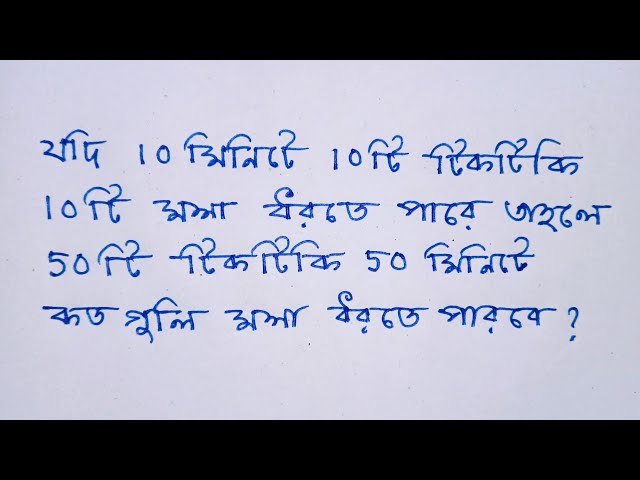 যদি 10 মিনিটে 10টি টিকটিকি
10টি মশা ধরতে পারে তাহলে
50টি টিকটিকি 50 মিনিটে
কত গুলি মশা ধরতে পারবে ?